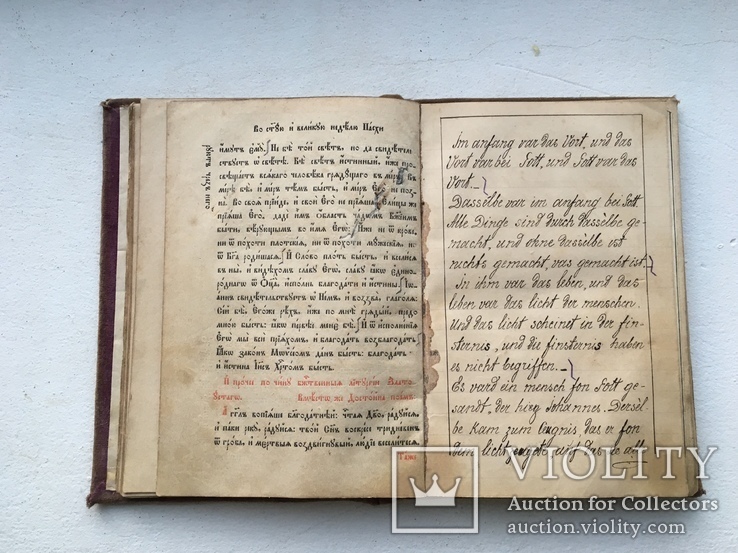 Во ст҃ꙋю и великꙋю недѣлю Пасхи
и҆́мꙋтъ є҆мꙋ̀. Не бѣ̀ то́й свѣ́тъ, но да свидѣ́тель
ствꙋетъ ѡ҆ свѣ́тѣ. Бѣ̀ свѣ́тъ и҆́стинный, и҆́же про
свѣща́етъ всѧ́каго человѣ́ка грѧдꙋ́щаго въ мі́ръ. Въ
мі́рѣ бѣ̀, и҆ мі́ръ тѣ́мъ бы́сть, и҆ мі́ръ є҆гѡ̀ не по
зна̀. Во своѧ̑ прїи́де, и҆ своѝ є҆гѡ̀ не прїѧ́ша. Є҆ли́цы же
прїѧ́ша є҆го̀, дадѐ и҆̀мъ ѡ҆́бласть ча́дѡмъ Бж҃їимъ
бы́ти, вѣ́рꙋющымъ во и҆́мѧ є҆гѡ̀. И҆̀же не ѿ кро́ве,
ни ѿ по́хоти плотскі́ѧ, ни ѿ по́хоти мꙋ́жескїѧ, но
ѿ Бг҃а роди́шасѧ. И҆ Сло́во пло́ть бы́сть, и҆ всели́сѧ
въ ны̀, и҆ ви́дѣхомъ сла́вꙋ є҆гѡ̀, сла́вꙋ ꙗ҆́кѡ є҆диноро́
днагѡ ѿ Ѻ҆ц҃а̀, и҆спо́лнь благода́ти и҆ и҆́стины. І҆ѡ
а́ннъ свидѣ́тельствꙋетъ ѡ҆ не́мъ, и҆ воззва̀, глаго́лѧ:
Се́й бѣ̀, є҆го́же рѣ́хъ, и҆́же по мнѣ̀ грѧды́й, предо
мно́ю бы́сть: ꙗ҆́кѡ пе́рвѣе менє̀ бѣ̀. И҆ ѿ и҆сполне́нїѧ
є҆гѡ̀ мы̀ всѝ прїѧ́хомъ, и҆ благода́ть воз̾благода́ть.
Ꙗ҆́кѡ зако́нъ Мѡѷсе́омъ да́нъ бы́сть: благода́ть
и҆ и҆́стина І҆и҃съ Хрⷭ҇то́мъ бы́сть.
И҆ про́чее по чи́нꙋ бж҃е́ственныѧ лїтꙋргі́и Злато
ꙋ́стагѡ. Вмѣ́стѡ же Досто́йно пое́мъ:
А҆́гг҃лъ вопїѧ́ше блгⷣа́тнѣй: чⷭ҇таѧ Дв҃о, ра́дꙋйсѧ,
и҆ па́ки рекꙋ̀, ра́дꙋйсѧ: тво́й Сн҃ъ воскре́се тридне́венъ
ѿ гро́ба, и҆ мє́ртвыѧ воздви́гнꙋвый, лю́дїе весели́тесѧ.
Im anfang var das Vort, und das
Vort var bei Gott, und Gott var das
Vort.
Dasselbe var im anfang bei Gott
Alle Dinge sind durch dasselbe ge-
macht, und ohne dasselbe ist
nichts gemacht, vas gemacht ist.
In ihm var das leben, und das
leben var das licht der menschen.
Und das licht scheinet in der fin-
sternis, und die finsternis haben
es nicht begriffen.
Es vard ein mensch fon Gott ge-
sandt, der hieg Johannes. Dersel-
be kam zum Zeugnis das er fon
dem licht zeugete, auf das sie all
VIOLITY
Auction for Collectors
auction.violity.com